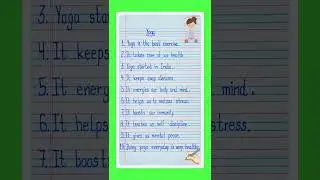 3. Yoga star
4. It keeps
5. It energ
6. It helps
7. It boost
Yoga
1. Yoga is the best exercise.
2. It takes care of our health.
3. Yoga started in India.
4. It keeps away diseases.
5. It energies our body and mind.
6. It helps us to reduce stress.
7. It boosts our immunity.
8. It teaches us self discipline.
9. It gives us mental peace.
10. Doing yoga everyday is very healthy.
mind.
stress.